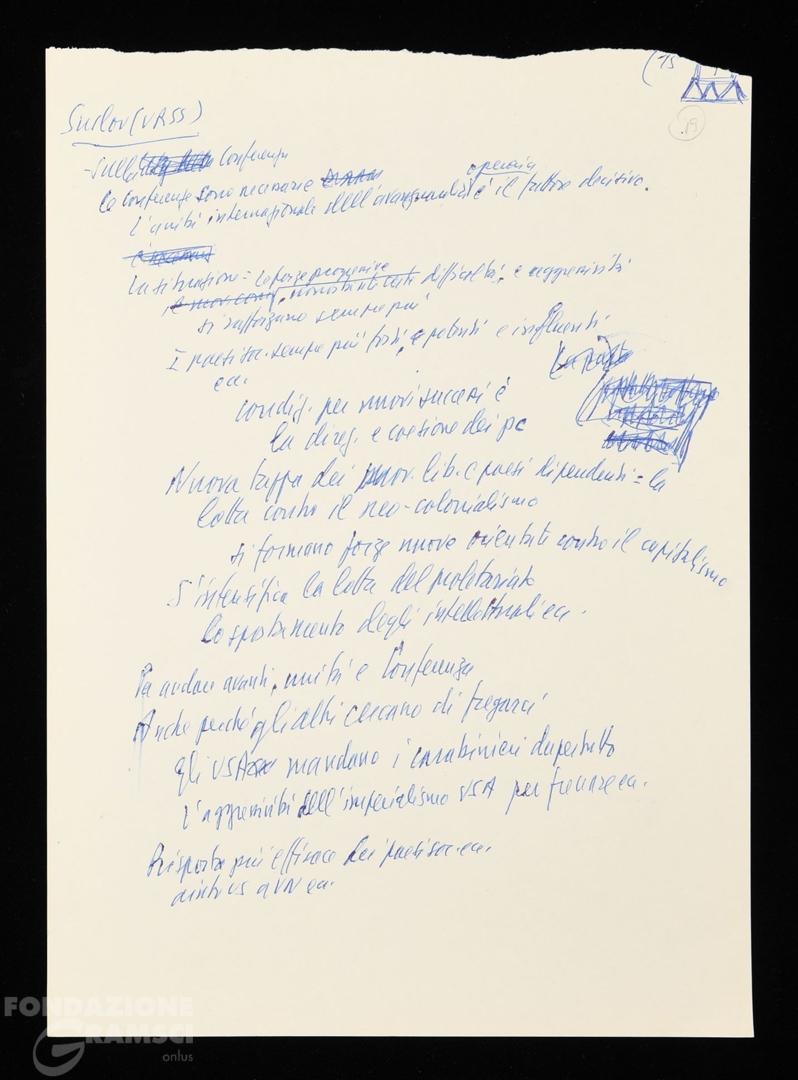 (15
19
Suslov (URSS)
- Sulla Conferenza
le conferenze sono necessarie
operaia
L'unità internazionale dell'avanguardia è il fattore decisivo.
La situazione = le forze progressive
nonostante difficoltà, e aggressività
si rafforzano sempre più
I paesi soc. sempre più forti, e potenti e influenti
ecc.
condiz. per nuovi successi è
la direz. e coesione dei pc
Nuova tappa dei mov. lib. e paesi dipendenti = la
lotta contro il neo-colonialismo
si formano forze nuove orientati contro il capitalismo
S'intensifica la lotta del proletariato
lo spostamento degli intellettuali ecc.
Per andare avanti, unità e Conferenza
Anche perché gli altri cercano di fregarci
gli USA mandano i carabinieri dapertutto
L'aggressività dell'imperialismo USA per frenare ecc.
Risposta più efficace dei paesi soc. ecc.
aiuto US a VN ecc.
FONDAZIONE
GRAMSCI
onlus